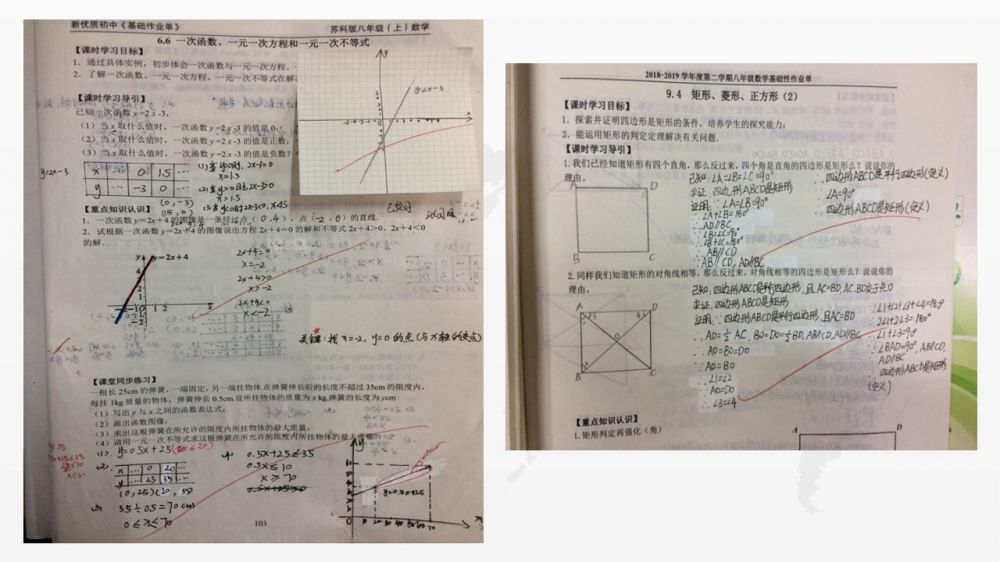 新优质初中《基础作业单》 苏科版八年级（上）数学
6.6 一次函数、一元一次方程和一元一次不等式
【课时学习目标】
1．通过具体实例，初步体会一次函数与一元一次方程、
2．了解一次函数、一元一次方程、一元一次不等式在解
【课时学习导引】
已知一次函数 y=2x-3，
（1）当 x 取什么值时，一次函数 y=2x-3 的值是 0；
（2）当 x 取什么值时，一次函数 y=2x-3 的值是正数；
（3）当 x 取什么值时，一次函数 y=2x-3 的值是负数？
y=2x-3
x … 0 1.5 …
y … -3 0 …
(0, -3)
(1.5, 0)
(1)当y=0时, 2x-3=0
x=1.5
(2)当y>0时 2x-3>0
x>1.5
(3)当y<0时 2x-3<0, x<1.5
y=2x-3
【重点知识认识】
1．一次函数 y=2x+4 的图像是一条经过点（ 0 , 4 ），点（ -2 , 0 ）的直线.
2．试根据一次函数 y=2x+4 的图像说出方程 2x+4=0 的解和不等式 2x+4>0，2x+4<0
的解.
y=2x+4
2x+4=0
x=-2
2x+4>0
x>-2
2x+4<0
x<-2
关键: 找 x=-2, y=0 的点 (与 x 轴的交点)
【课堂同步练习】
一根长 25cm 的弹簧，一端固定，另一端挂物体.在弹簧伸长后的长度不超过 35cm 的限度内，
每挂 1kg 质量的物体，弹簧伸长 0.5cm.设所挂物体的质量为 x kg,弹簧的长度为 ycm
（1）写出 y 与 x 之间的函数表达式；
（2）画出函数图像；
（3）求出这根弹簧在所允许的限度内所挂物体的最大质量；
（4）请用一元一次不等式求这根弹簧在所允许的限度内所挂物体的最大质量.
(1). y=0.5x+25
(2) x … 0 20 …
y … 25 35 …
(0, 25) (20, 35)
(3) 35÷0.5=70cm
0≤x≤70
(4) 0.5x+25≤35
0.5x≤10
x≥70
y=0.5x+25
103
2018-2019 学年度第二学期八年级数学基础性作业单
9.4 矩形、菱形、正方形（2）
【课时学习目标】
1．探索并证明四边形是矩形的条件，培养学生的探究能力；
2．能运用矩形的判定定理解决有关问题.
【课时学习导引】
1.我们已经知道矩形有四个直角，那么反过来，四个角是直角的四边形是矩形么？说说你的
理由。
A D
B C
已知, ∠A=∠B=∠C=90°
求证, 四边形ABCD是矩形
证明: ∵∠A=∠B=90°
∴∠A+∠B=180°
∴AD//BC
∵∠B=∠C=90°
∴∠B+∠C=180°
∴AB//CD
∵AB//CD, AD//BC
∴四边形ABCD是平行四边形(定义)
∵∠A=90°
∴四边形ABCD是矩形(定义)
2.同样我们知道矩形的对角线相等，那么反过来，对角线相等的四边形是矩形么？说说你的
理由。
A D
B C
已知, 四边形ABCD是平行四边形, 且AC=BD, AC、BD交于点O
求证, 四边形ABCD是矩形
证明: ∵四边形ABCD是平行四边形, 且AC=BD
∴AO=½AC, BO=DO=½BD, AB//CD, AD//BC
∴AO=BO=DO
∵AO=BO
∴∠1=∠2
∵AO=DO
∴∠3=∠4
∵∠1+∠2+∠3+∠4=180°
∴2∠1+2∠3=180°
∴∠1+∠3=90°
∴∠BAD=90°
∵AB//CD,
AD//BC
∴四边形ABCD是矩形
(定义)
【重点知识认识】
1.矩形判定再强化（角）
A D